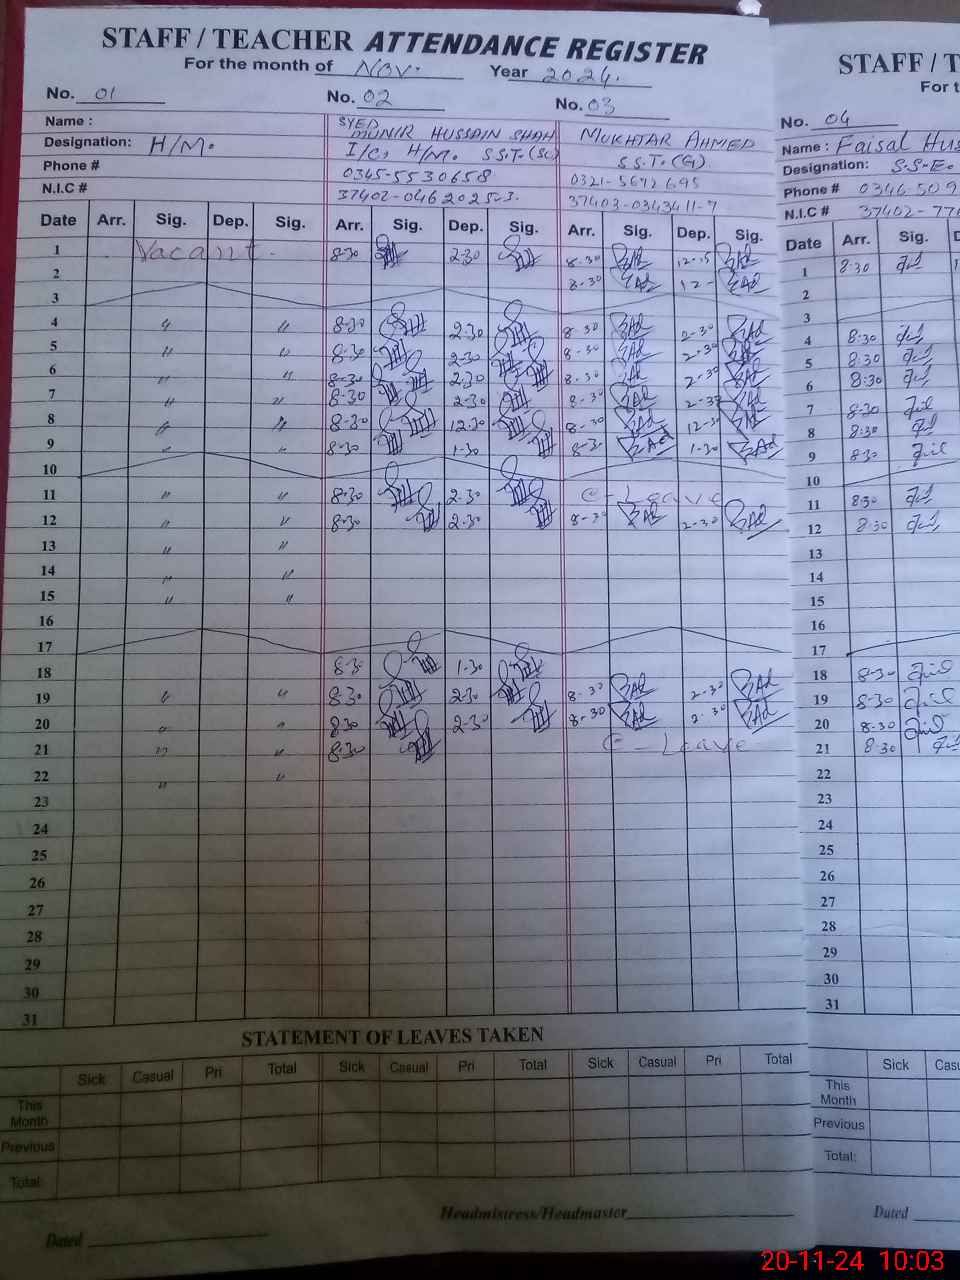 STAFF / TEACHER ATTENDANCE REGISTER
For the month of Nov. Year 2024.
No. 01 No. 02 No. 03
Name : SYED MUNIR HUSSAIN SHAH MUKHTAR AHMED
Designation: H/M. I/C, H/M. S.S.T.(Sc) S.S.T.(G)
Phone # 0345-5530658 0321-5672695
N.I.C # 37402-0462025-3. 37403-0343411-7
Date Arr. Sig. Dep. Sig. Arr. Sig. Dep. Sig. Arr. Sig. Dep. Sig.
1 Vacant. 8-30 2-30 8-30 12-15
2 8-30 12-
3
4 " " 8-30 2-30 8-30 2-30
5 " " 8-30 2-30 8-30 2-30
6 " " 8-30 2-30 8-30 2-30
7 " " 8-30 2-30 8-30 2-30
8 " " 8-30 12-30 8-30 12-30
9 " " 8-30 1-30 8-30 1-30
10
11 " " 8-30 2-30 C-Leave
12 " " 8-30 2-30 8-30 2-30
13 " "
14 " "
15 " "
16
17
18 8-30 1-30
19 " " 8-30 2-30 8-30 2-30
20 " " 8-30 2-30 8-30 2-30
21 " " 8-30 C-Leave
22 " "
23
24
25
26
27
28
29
30
31
STATEMENT OF LEAVES TAKEN
Sick Casual Pri Total Sick Casual Pri Total Sick Casual Pri Total
This Month
Previous
Total:
Headmistress/Headmaster
Dated
STAFF / T
For t
No. 04
Name : Faisal Hus
Designation: S.S.E.
Phone # 0346-509
N.I.C # 37402-77
Date Arr. Sig. D
1 8:30
2
3
4 8:30
5 8:30
6 8:30
7 8:30
8 8:30
9 8:30
10
11 8:30
12 8:30
13
14
15
16
17
18 8-30
19 8-30
20 8-30
21 8:30
22
23
24
25
26
27
28
29
30
31
Sick Cas
This Month
Previous
Total:
Dated
20-11-24 10:03